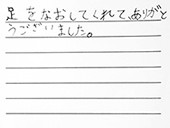 足をなおしてくれて、ありがと
うございました。